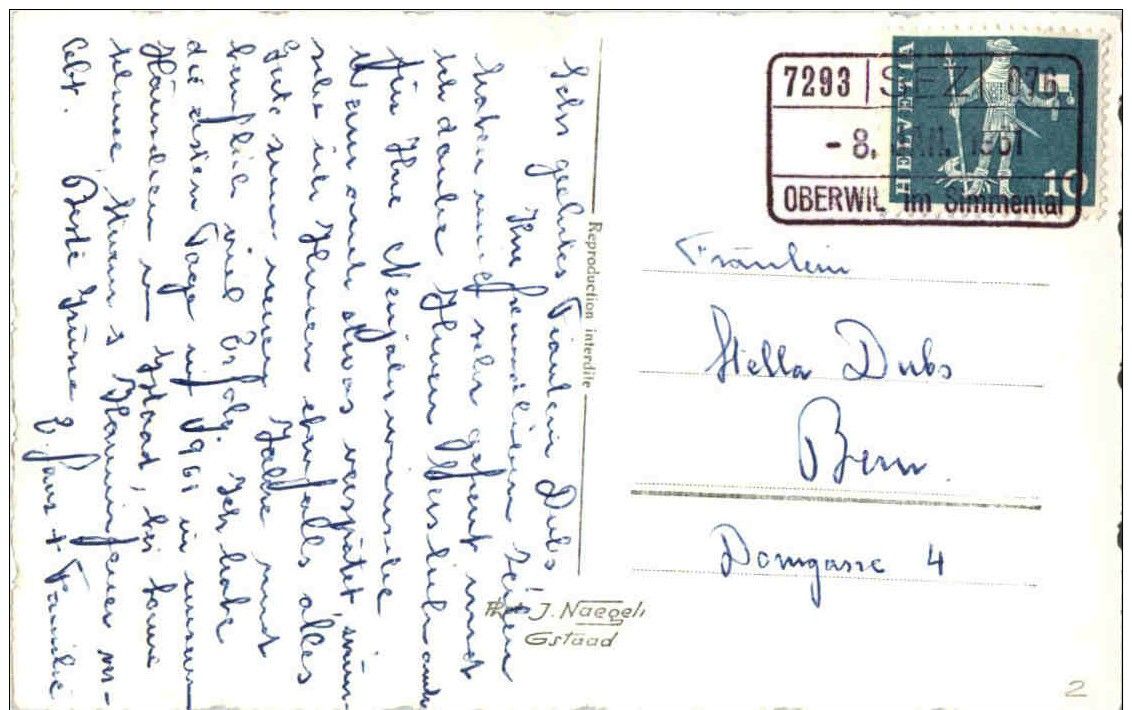 Sehr geehrtes Fräulein Dubs!
Ihre freundlichen Zeilen
haben mich sehr gefreut und
ich danke Ihnen herzlich auch
für Ihre Neujahrswünsche
Wenn auch etwas verspätet, wün-
sche ich Ihnen ebenfalls alles
Gute zum neuen Jahre und
beruflich viel Erfolg. Ich habe
die ersten Tage auf 1961 in unserm
Häuschen in Gstaad, bei Sonne
Schnee, Sturm & Kaminfeuer ver-
lebt. Beste Grüsse, + Familie
Reproduction interdite
Phot J. Naegeli
Gstaad
7293 SEZ 076
- 8. 1961
OBERWIL im Simmental
HELVETIA
10
Fräulein
Stella Dubs
Bern
Domgasse 4
2